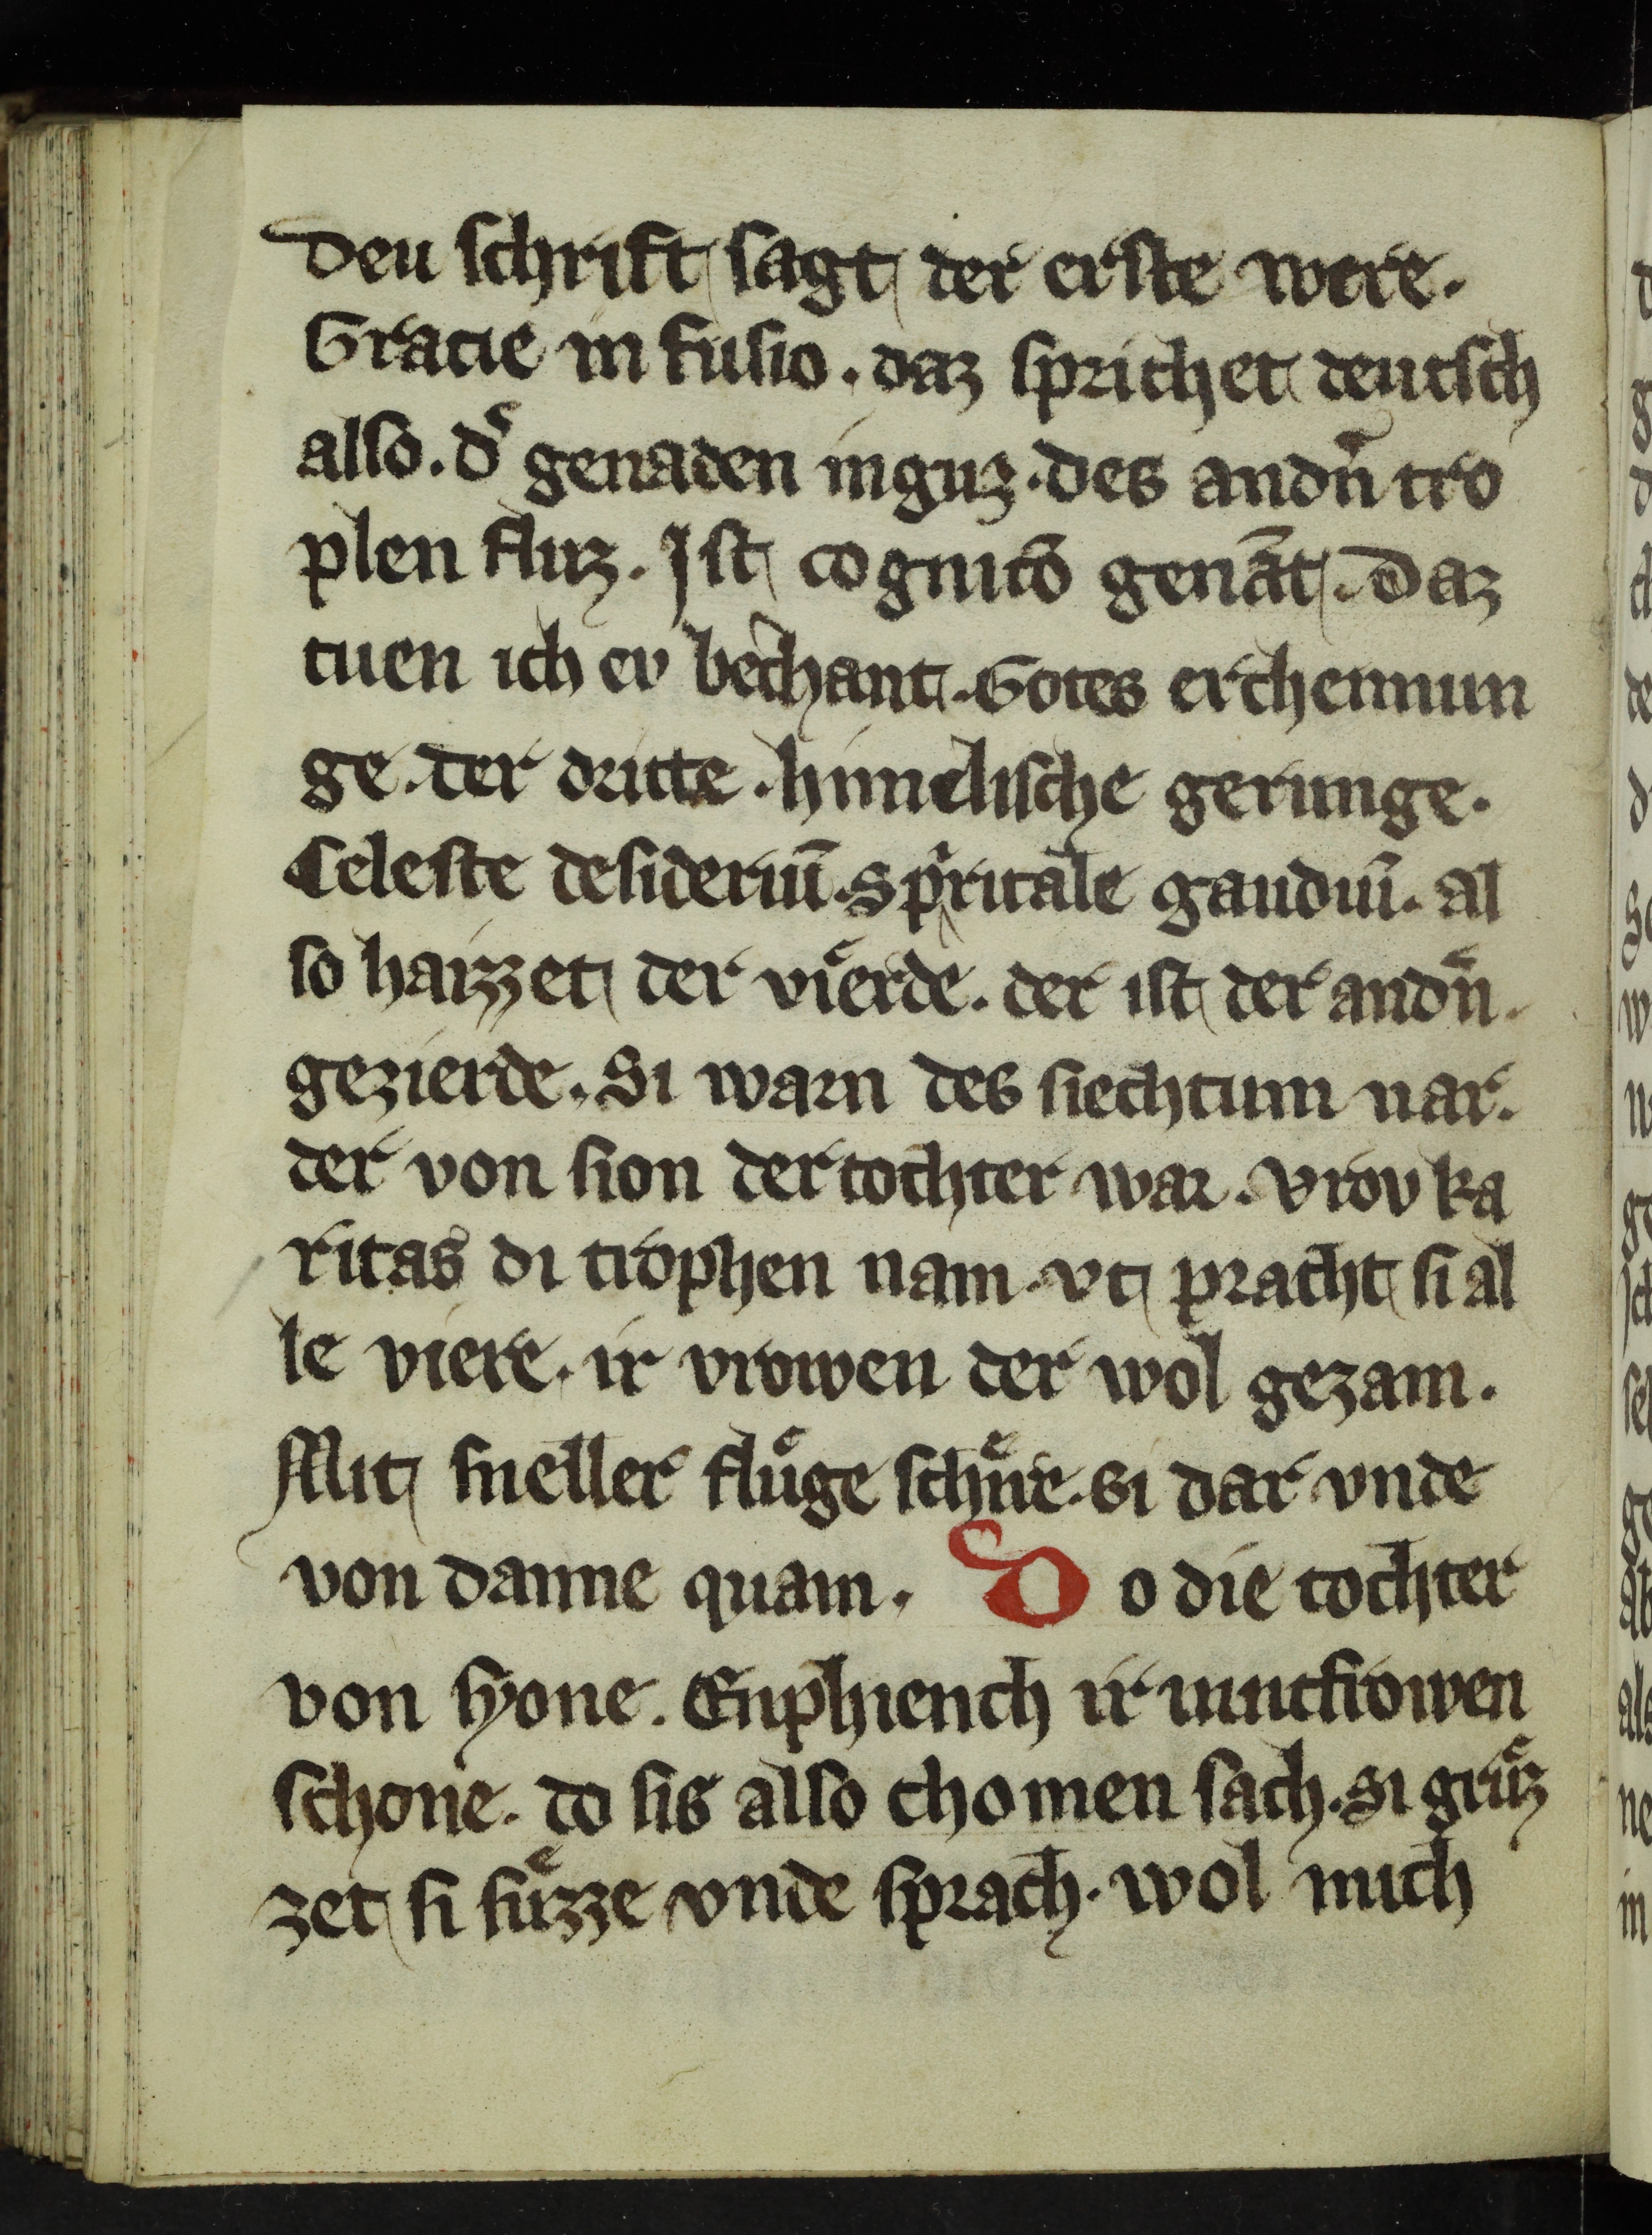 Deu schrift sagt der erste were.
Gracie in fusio. daz sprichet deutsch
also. d͛ genaden inguz. des andn̄ tro
plen fluz. Jst cognitō genāt. Daz
tuen ich ev bechant. Gotes erchennun
ge. der dritte. himelische gerunge.
Celeste desideriū. Spiritale gaudiū. al
so haizzet der vierde. der ist der andn̄.
gezierde. Si warn des siechtum nar.
der von sion der tochter war. Vrov ka
ritas di trophen nam. vt pracht si al
le viere. ir vrowen der wol gezam.
Mit sneller fluͤge schire. si dar vnde
von danne quam. Do die tochter
von syone. Enphiench ir iunctfrowen
schone. do sis also chomen sach. si gruͤz
zet si suͤzze vnde sprach. wol mich